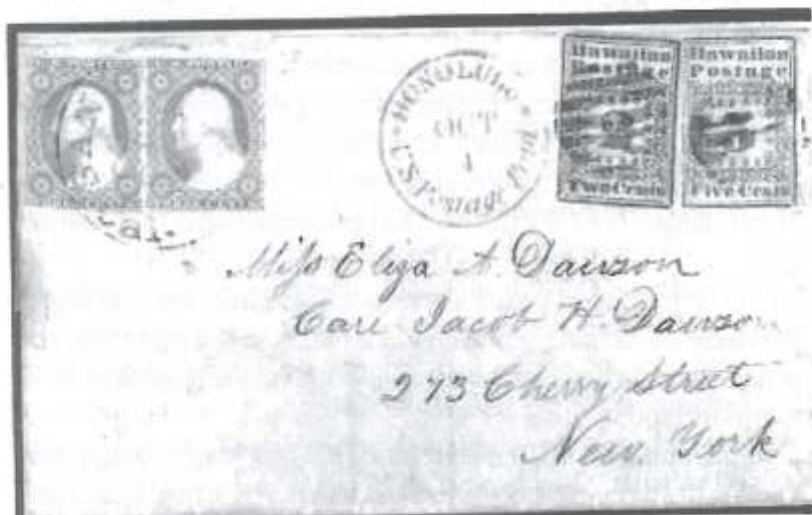 HONOLULU
OCT
4
U.S. Postage Paid
Hawaiian
Postage
Two Cents
Hawaiian
Postage
Five Cents
Miss Eliza A. Dawson
Care Jacob H. Dawson
273 Cherry Street
New York